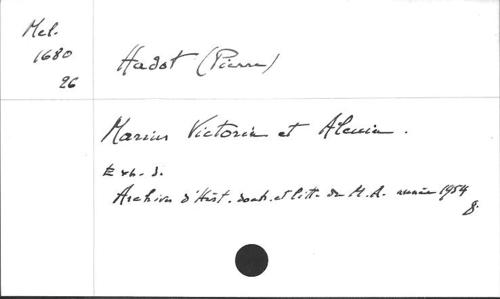 Mel.
1680
26
Hadot (Pierre)
Marius Victorin et Alcuin.
Extr. d.
Archives d'Hist. doct. et litt. du M.A. année 1954
8.